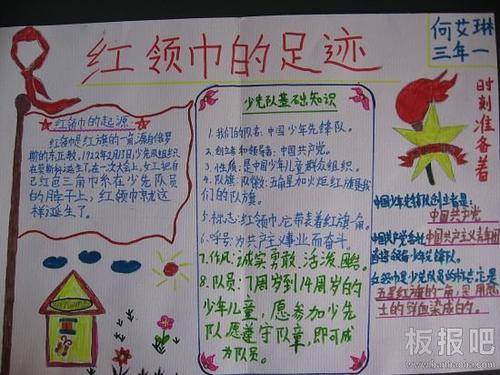 红领巾的足迹
何艾琳
三年一
时刻准备着
红领巾的起源
红领巾是红旗的一角,源自俄罗
斯的东正教,1922年2月13日,少先队组织
在莫斯科诞生了,在一次大会上,女工把自
己红色三角巾系在少先队员
的脖子上,红领巾就这
样诞生了。
少先队基础知识
1.我们的队名:中国少年先锋队。
2.创立者和领导者:中国共产党。
3.性质:是中国少年儿童群众组织。
4.队旗、队徽:五角星加火炬红旗是我
们的队旗。
5.标志:红领巾,它带表着红旗一角。
6.呼号:为共产主义事业而奋斗。
7.作风:诚实、勇敢、活泼、团结。
8.队员:7周岁到14周岁的
少年儿童,愿参加少先
队愿遵守队章,即可成
为队员。
中国少年先锋队创立者是:
中国共产党
中国共产党委托中国共产主义青年团
直接领导少年先锋队。
红领巾是少先队员的标志它是
五星红旗的一角,是用烈
士的鲜血染成的。
板报吧
www.banbaoba.com